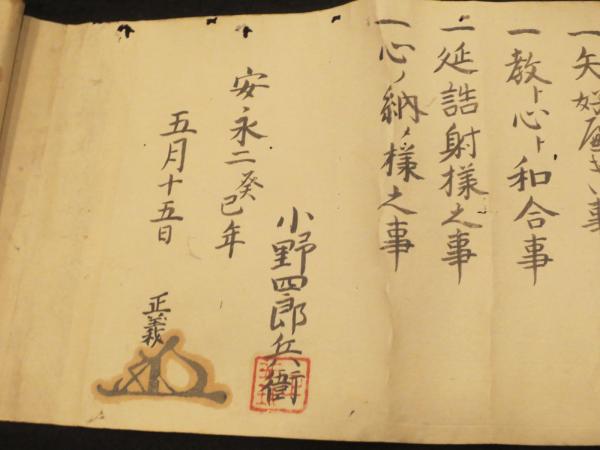 一教ト心ト和合事
一延詰射様之事
一心ノ納ノ様之事
小野四郎兵衛
安永二癸巳年
五月十五日
正義